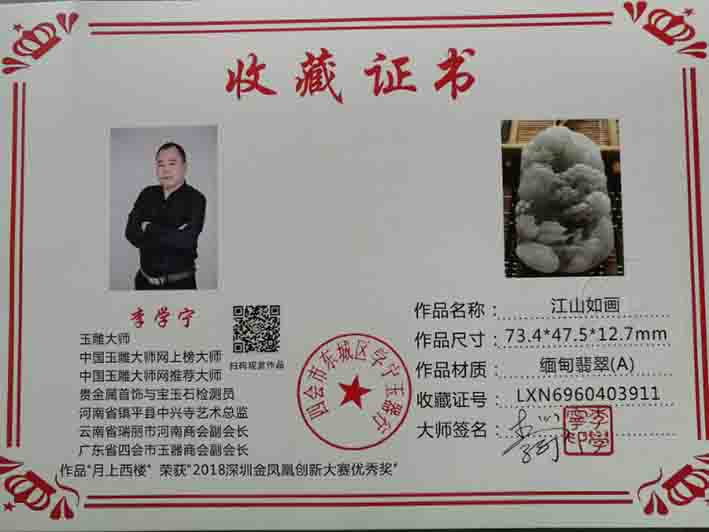 收藏证书
李学宁
玉雕大师
中国玉雕大师网上榜大师
中国玉雕大师网推荐大师
贵金属首饰与宝玉石检测员
河南省镇平县中兴寺艺术总监
云南省瑞丽市河南商会副会长
广东省四会市玉器商会副会长
作品"月上西楼" 荣获"2018深圳金凤凰创新大赛优秀奖"
扫码观赏作品
四会市东城区学宁玉器厅
作品名称: 江山如画
作品尺寸: 73.4*47.5*12.7mm
作品材质: 缅甸翡翠(A)
收藏证号: LXN6960403911
大师签名:
李學寧印